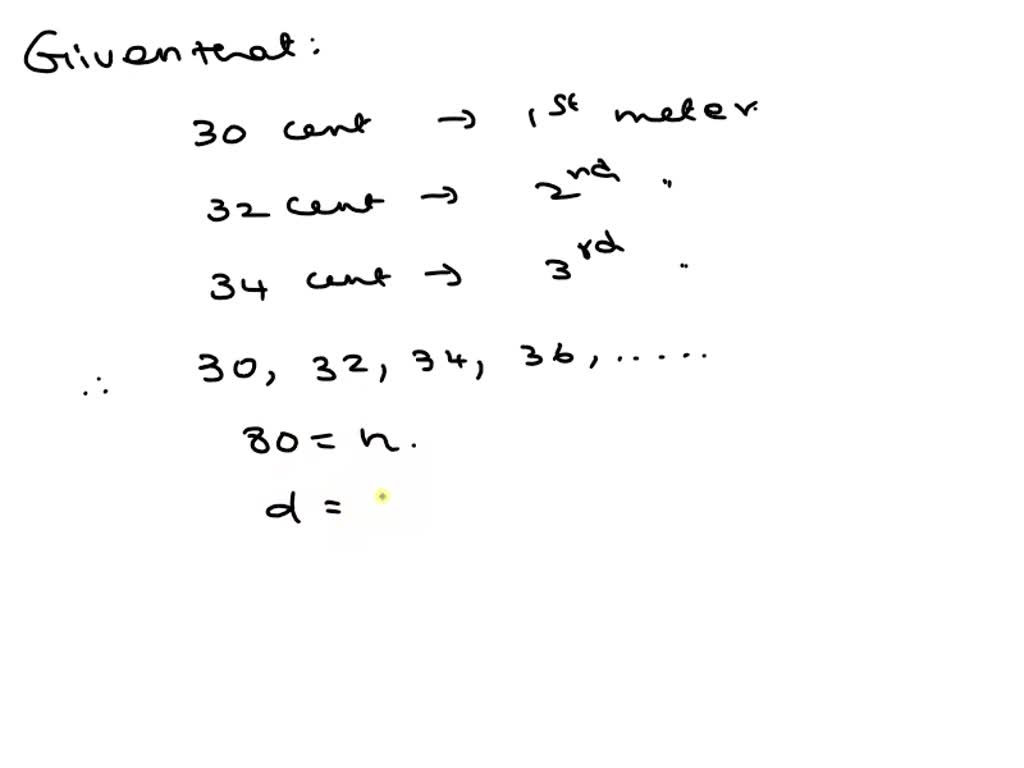 Given that:
30 cent → 1st meter.
32 cent → 2nd "
34 cent → 3rd "
∴ 30, 32, 34, 36, .....
80 = n.
d =